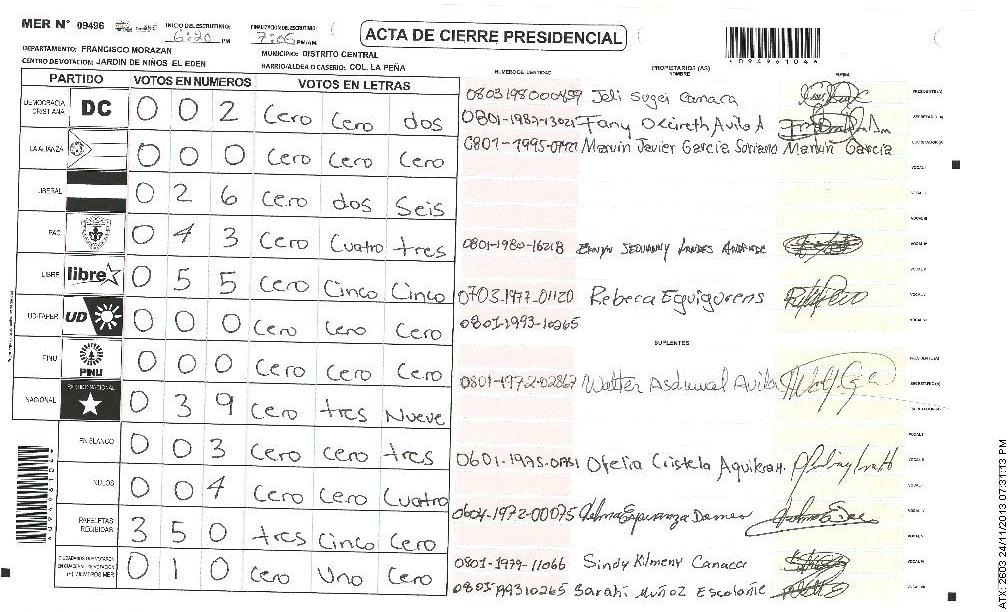 MER N° 09496
INICIO DEL ESCRUTINIO: 6:20 PM
FINALIZACION DEL ESCRUTINIO: 7:05 PM/AM
ACTA DE CIERRE PRESIDENCIAL
DEPARTAMENTO: FRANCISCO MORAZAN
MUNICIPIO: DISTRITO CENTRAL
CENTRO DE VOTACION: JARDIN DE NIÑOS EL EDEN
BARRIO/ALDEA O CASERIO: COL. LA PEÑA
PARTIDO VOTOS EN NUMEROS VOTOS EN LETRAS
DEMOCRACIA CRISTIANA DC 0 0 2 Cero Cero dos
LA ALIANZA 0 0 0 Cero Cero Cero
LIBERAL 0 2 6 Cero dos Seis
PAC 0 4 3 Cero Cuatro tres
LIBRE libre 0 5 5 Cero Cinco Cinco
UD-FAPER UD 0 0 0 Cero Cero Cero
PINU PINU 0 0 0 Cero Cero Cero
NACIONAL PARTIDO NACIONAL 0 3 9 Cero tres Nueve
EN BLANCO 0 0 3 Cero Cero tres
NULOS 0 0 4 Cero Cero Cuatro
PAPELETAS RECIBIDAS 3 5 0 tres Cinco Cero
CIUDADANOS DE VOTARON EN CUADERNO DE VOTACION (+) MIEMBROS MER 0 1 0 Cero Uno Cero
NUMERO DE IDENTIDAD PROPIETARIOS (AS) NOMBRE FIRMA
Canaca PRESIDENTE(A)
Fany Avila A SECRETARIO(A)
Marvin Javier Garcia Soriano Marvin Garcia ESCRUTADOR(A)
VOCAL I
VOCAL II
VOCAL III
0801-1980-16218 VOCAL IV
0703-1977-01120 Rebeca Eguigurens VOCAL V
0801-1993-10265 VOCAL VI
SUPLENTES
PRESIDENTE(A)
0801-1972-02867 Walter Avila SECRETARIO(A)
ESCRUTADOR(A)
VOCAL I
Ofelia Cristela Aguilera H. VOCAL II
VOCAL III
0604-1972-00075 Esperanza VOCAL IV
VOCAL V
0801-1979-11066 Sindy Kilmeny Canaca VOCAL VI
Sarahi Muñoz Escolante VOCAL VII
ATX-2503 24/11/2013 07:31:13 PM